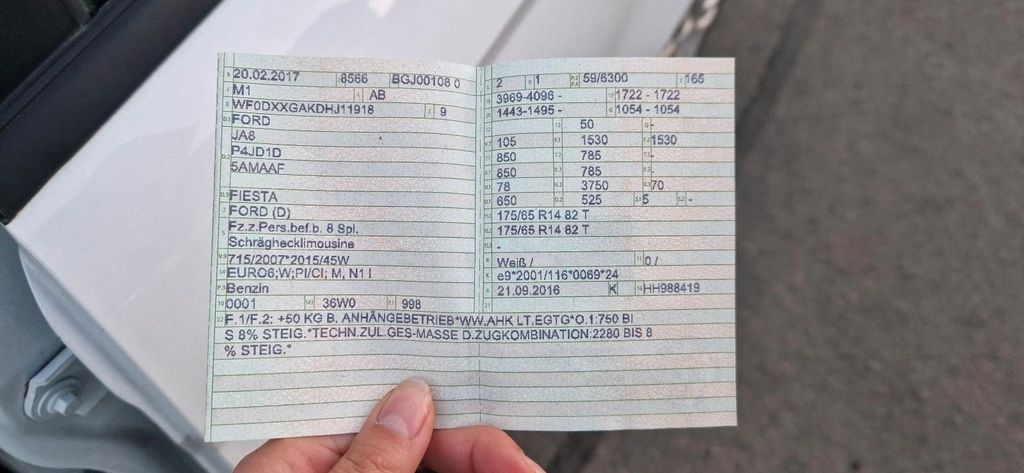 20.02.2017 8566 BGJ00108 0
M1 AB
WF0DXXGAKDHJ11918 9
FORD
JA8
P4JD1D
5AMAAF
FIESTA
FORD (D)
Fz.z.Pers.bef.b. 8 Spl.
Schräghecklimousine
715/2007*2015/45W
EURO6;W;PI/CI; M, N1 I
Benzin
0001 36W0 998
2 1 59/6300 165
3969-4096 - 1722 - 1722
1443-1495 - 1054 - 1054
50 -
105 1530 1530
850 785 -
850 785 -
78 3750 70
650 525 5 -
175/65 R14 82 T
175/65 R14 82 T
-
Weiß / 0 /
e9*2001/116*0069*24
21.09.2016 K HH988419
F.1/F.2: +50 KG B. ANHÄNGEBETRIEB*WW.AHK LT.EGTG*O.1:750 BI
S 8% STEIG.*TECHN.ZUL.GES-MASSE D.ZUGKOMBINATION:2280 BIS 8
% STEIG.*